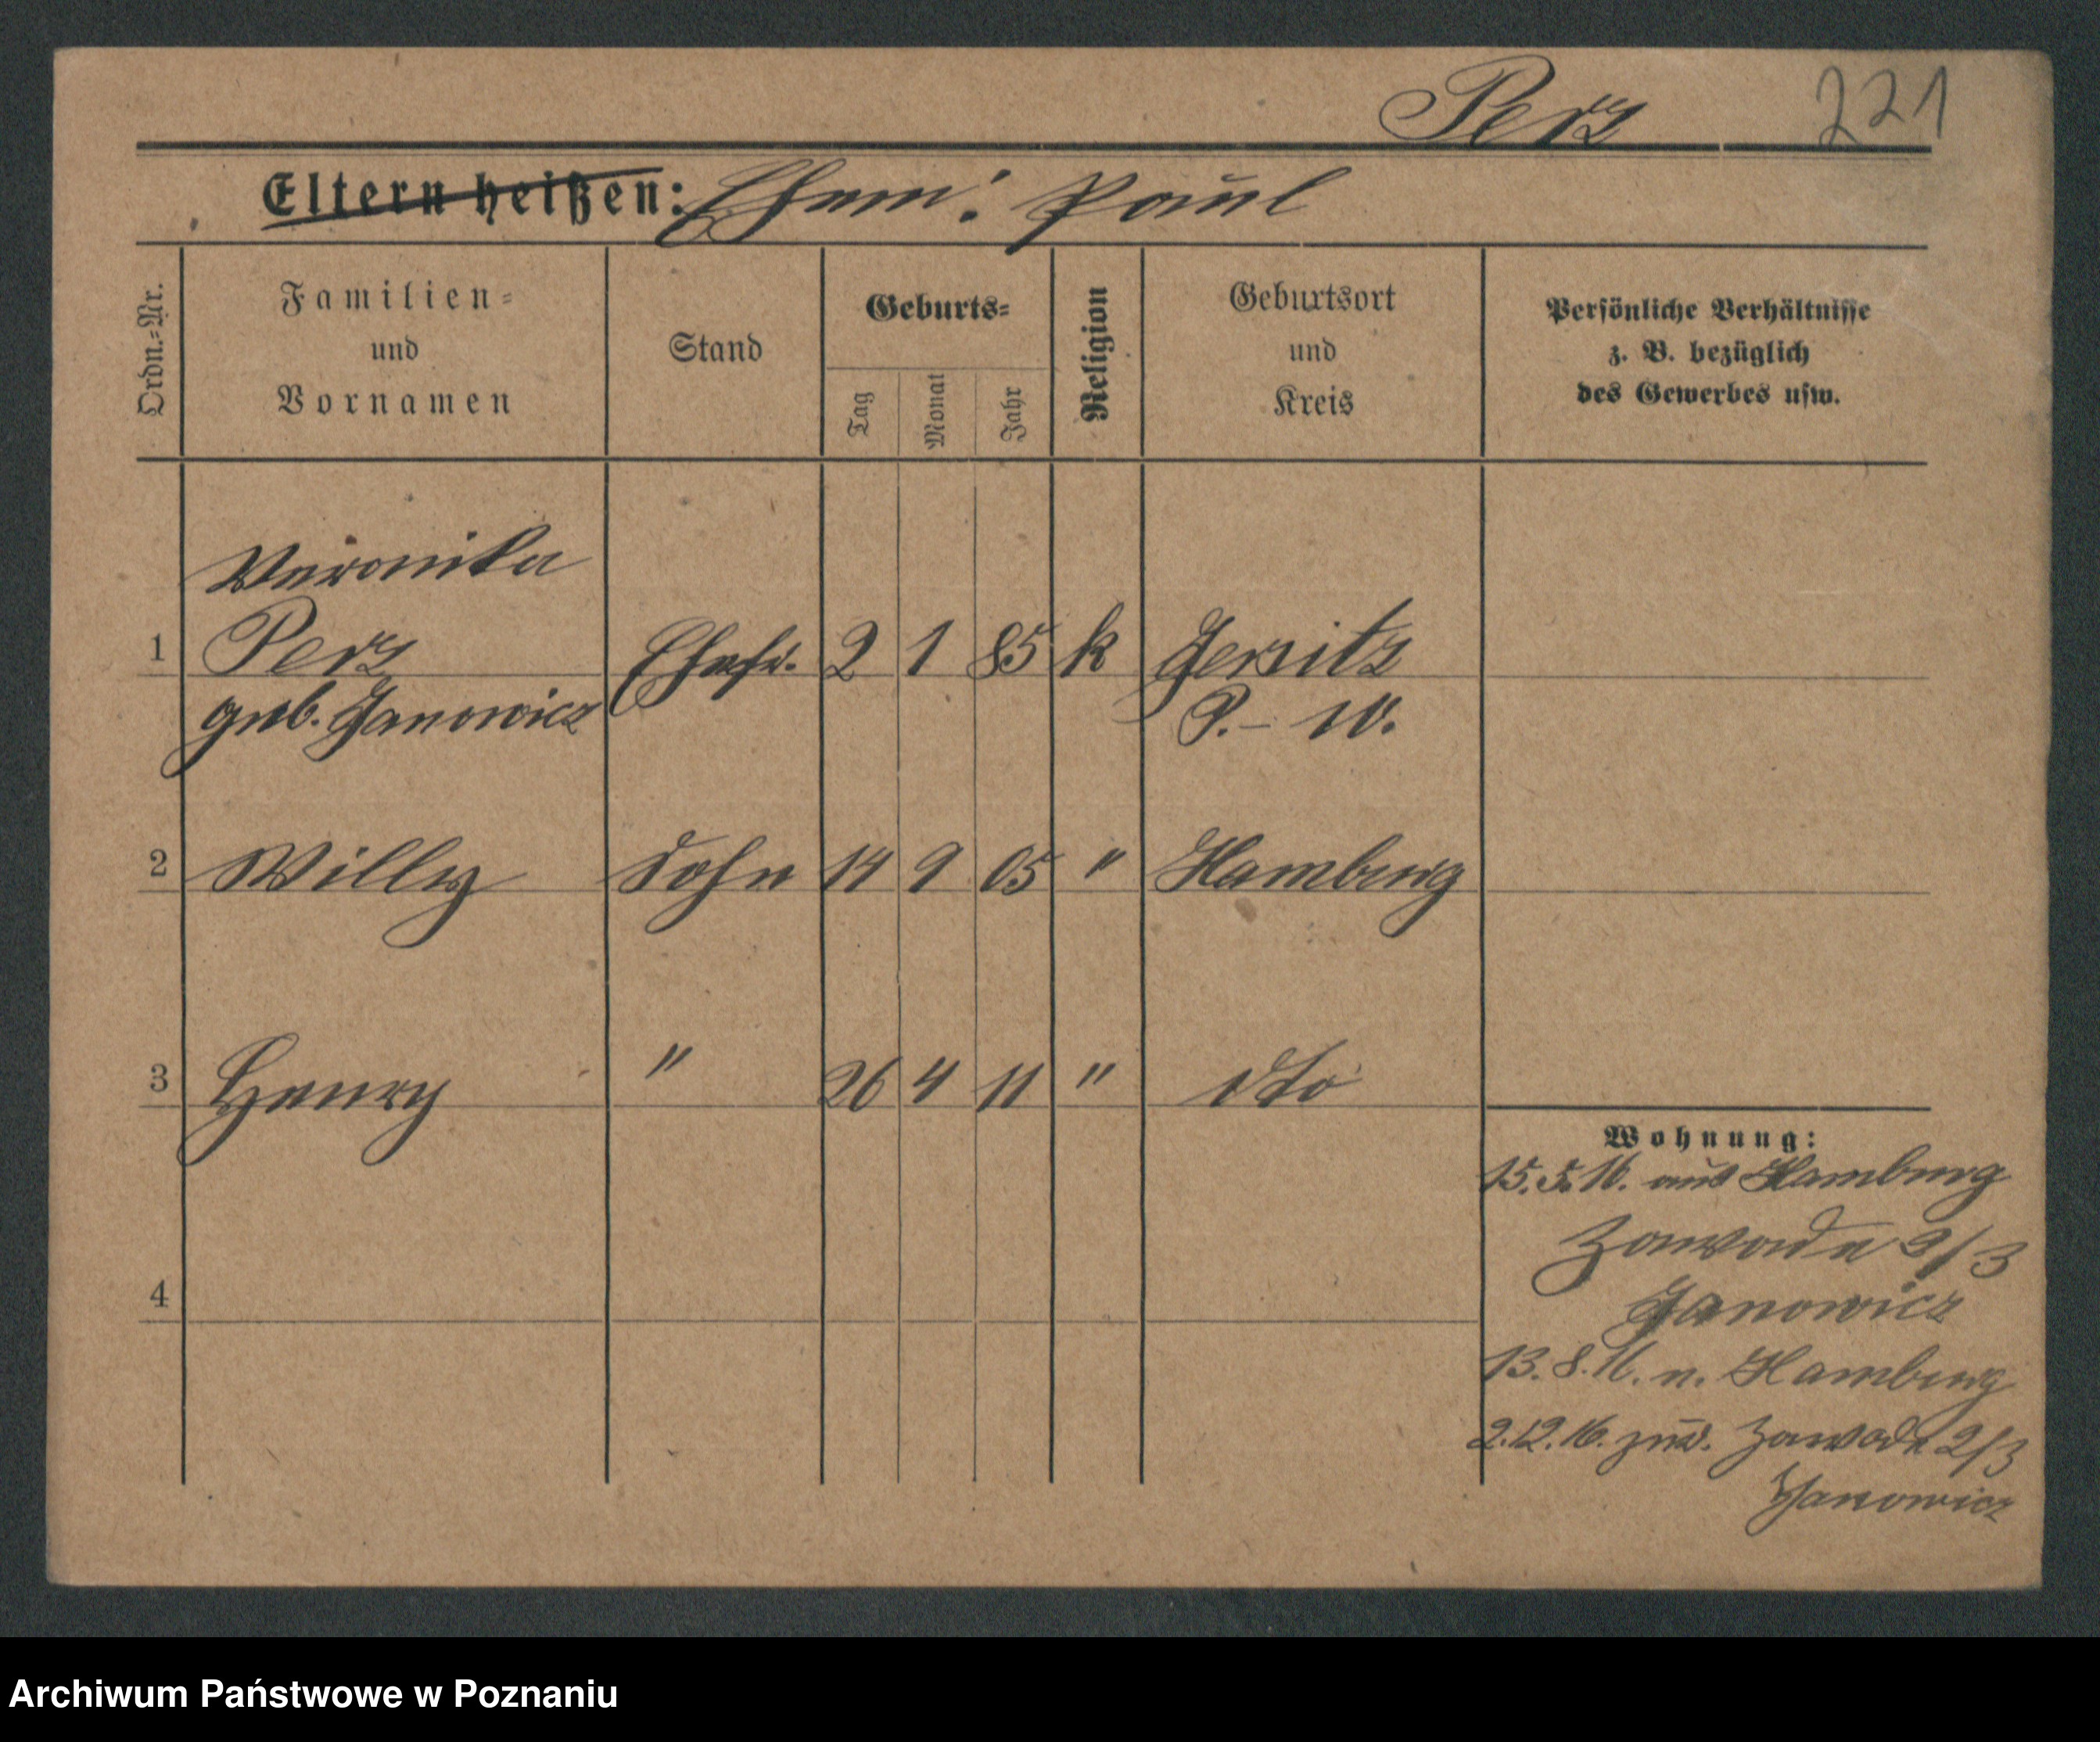 Perz 221
Eltern heißen: Ehem: Paul
Ordn.-Nr.
Familien-
und
Vornamen
Stand
Geburts-
Tag
Monat
Jahr
Religion
Geburtsort
und
Kreis
Persönliche Verhältnisse
z. B. bezüglich
des Gewerbes usw.
Veronika
1 Perz Ehefr. 2 1 85 k Jersitz
geb. Janowicz P. - W.
2 Willy Sohn 14 9 05 " Hamburg
3 Henry " 26 4 11 " dto
Wohnung:
15.5.16. aus Hamburg
Zawade 2/3
Janowicz
4
13.8.16. n. Hamburg
2.12.16. zur. Zawade 2/3
Janowicz
Archiwum Państwowe w Poznaniu